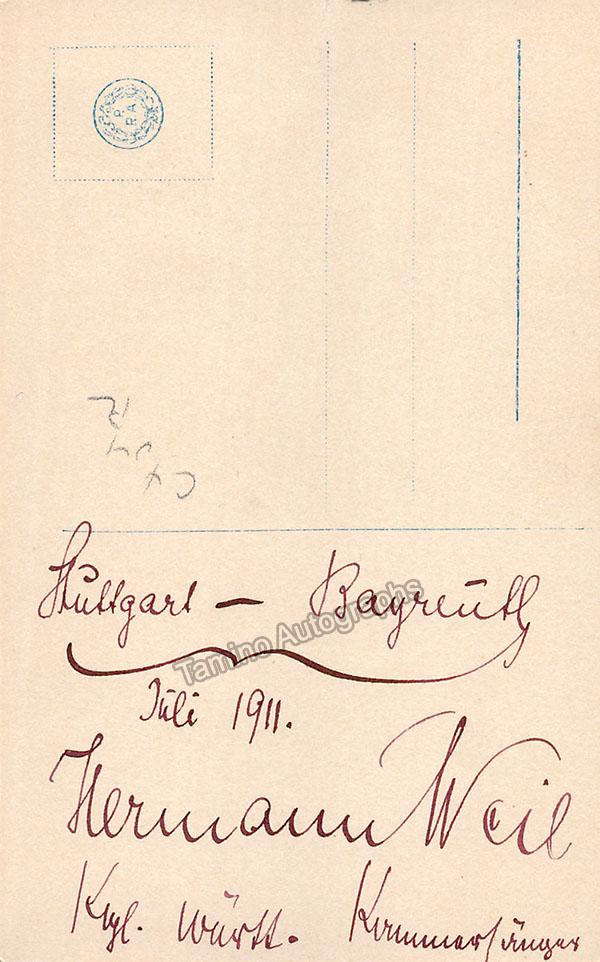 Stuttgart — Bayreuth
Tamino Autographs
Juli 1911.
Hermann Weil
Kgl. württ. Kammersänger